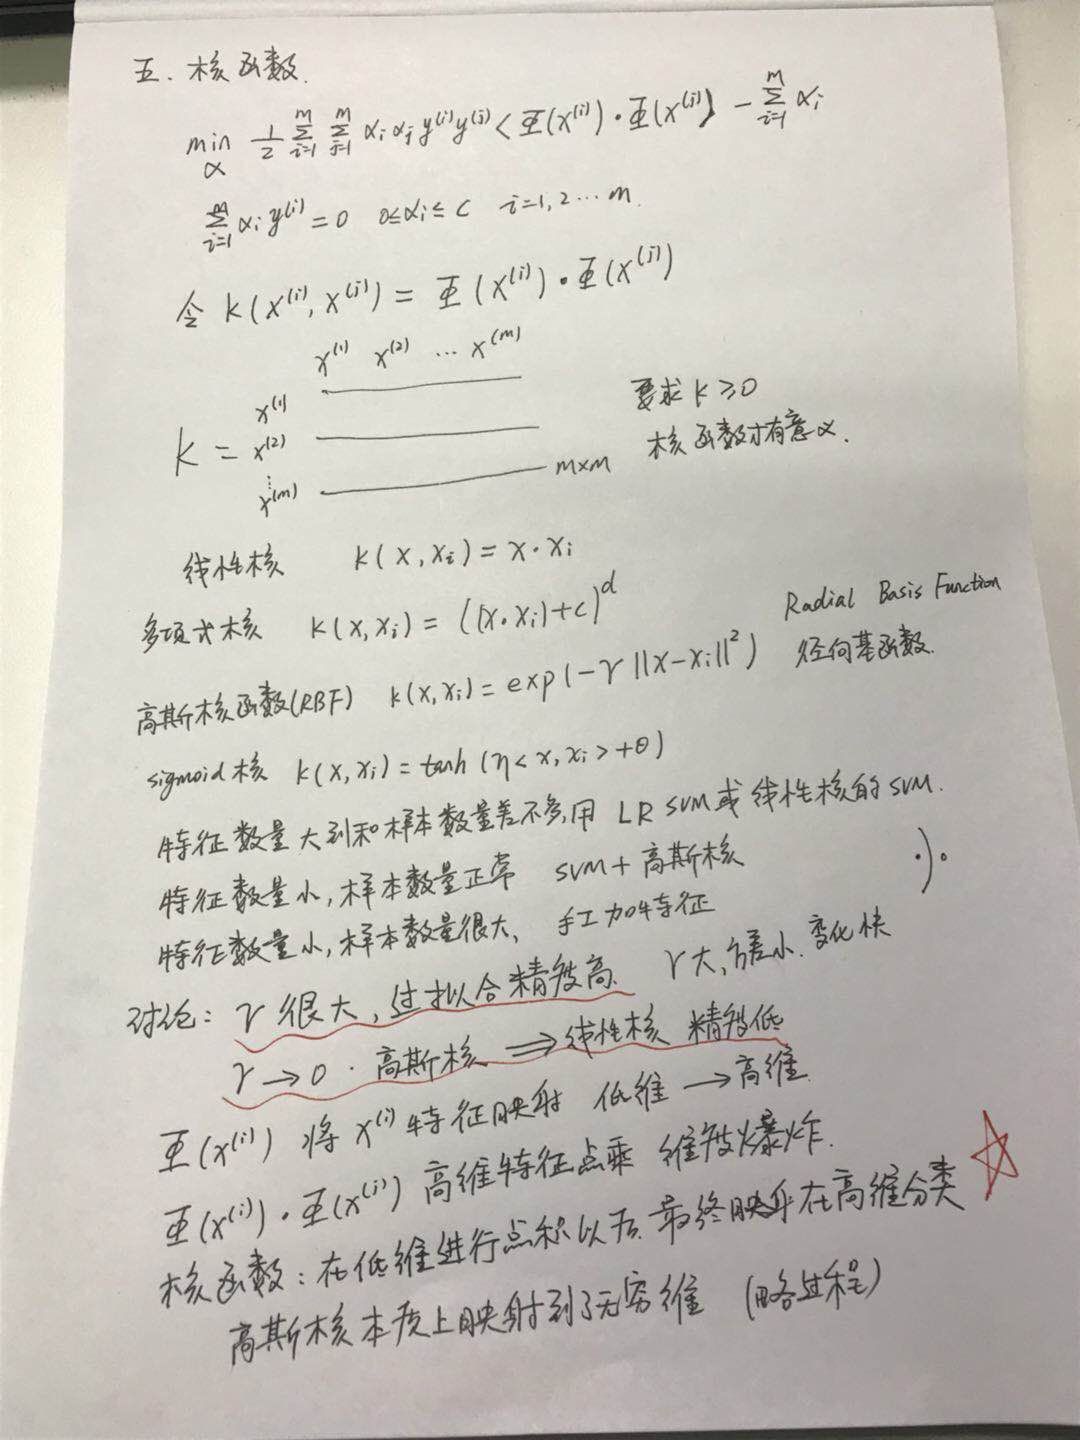 五、核函数.
min α 1/2 Σ_{i=1}^{m} Σ_{j=1}^{m} α_i α_j y^(i) y^(j) < Φ(x^(i)) · Φ(x^(j)) − Σ_{i=1}^{m} α_i
Σ_{i=1}^{m} α_i y^(i) = 0 0≤α_i≤C i=1,2…m.
令 K(x^(i), x^(j)) = Φ(x^(i)) · Φ(x^(j))
x^(1) x^(2) … x^(m)
x^(1)
K = x^(2)
⋮
x^(m)
m×m
要求 K ≥0
核函数才有意义.
线性核 K(x, x_i) = x · x_i
多项式核 K(x, x_i) = ((x·x_i)+c)^d
Radial Basis Function
高斯核函数(RBF) K(x, x_i) = exp(−γ ||x−x_i||²) 径向基函数.
sigmoid核 K(x, x_i) = tanh(η<x, x_i>+θ)
特征数量大到和样本数量差不多,用 LR SVM或线性核的SVM.
特征数量小,样本数量正常 SVM+高斯核
特征数量小,样本数量很大、手工加特征
讨论: γ很大,过拟合精度高. γ大,方差小.变化快
γ→0 · 高斯核 ⟹ 线性核 精度低
Φ(x^(i)) 将 x^(i) 特征映射 低维 → 高维.
Φ(x^(i)) · Φ(x^(j)) 高维特征点乘 维度爆炸.
核函数: 在低维进行点积以后.最终映射在高维分类 ☆
高斯核本质上映射到了无穷维 (略过程)